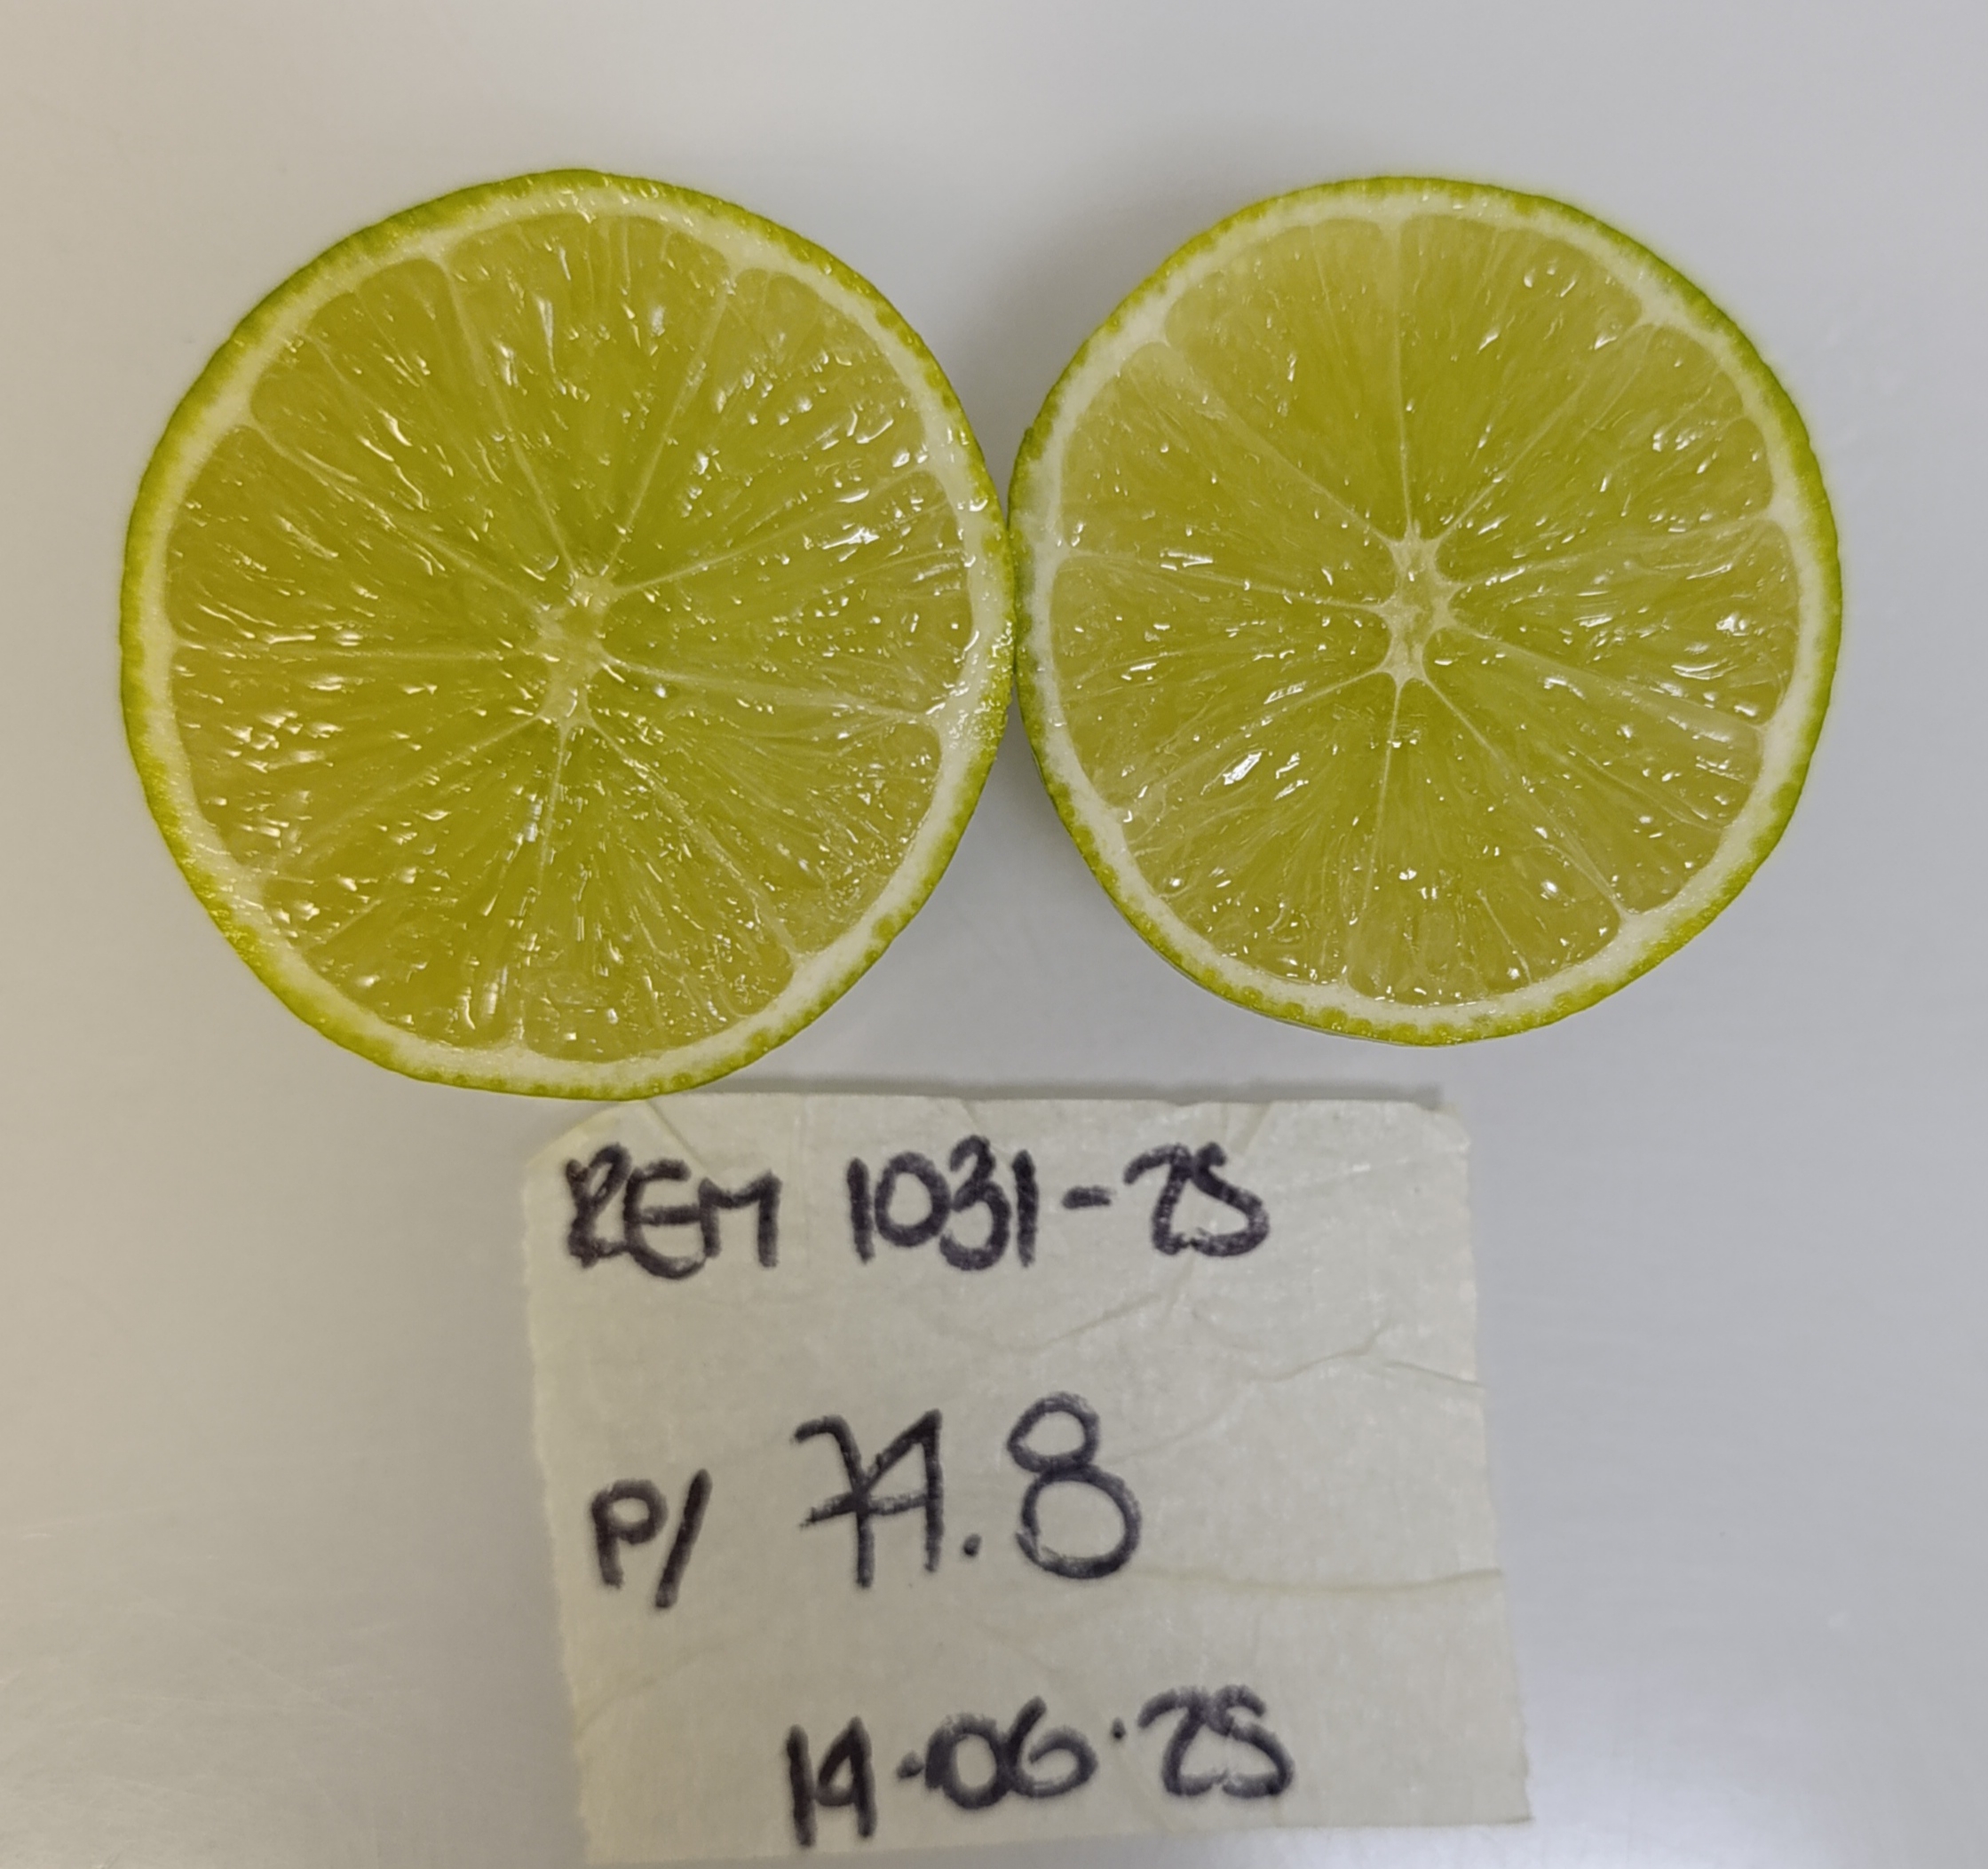 REM 1031-25
P/ 74.8
14.06.25